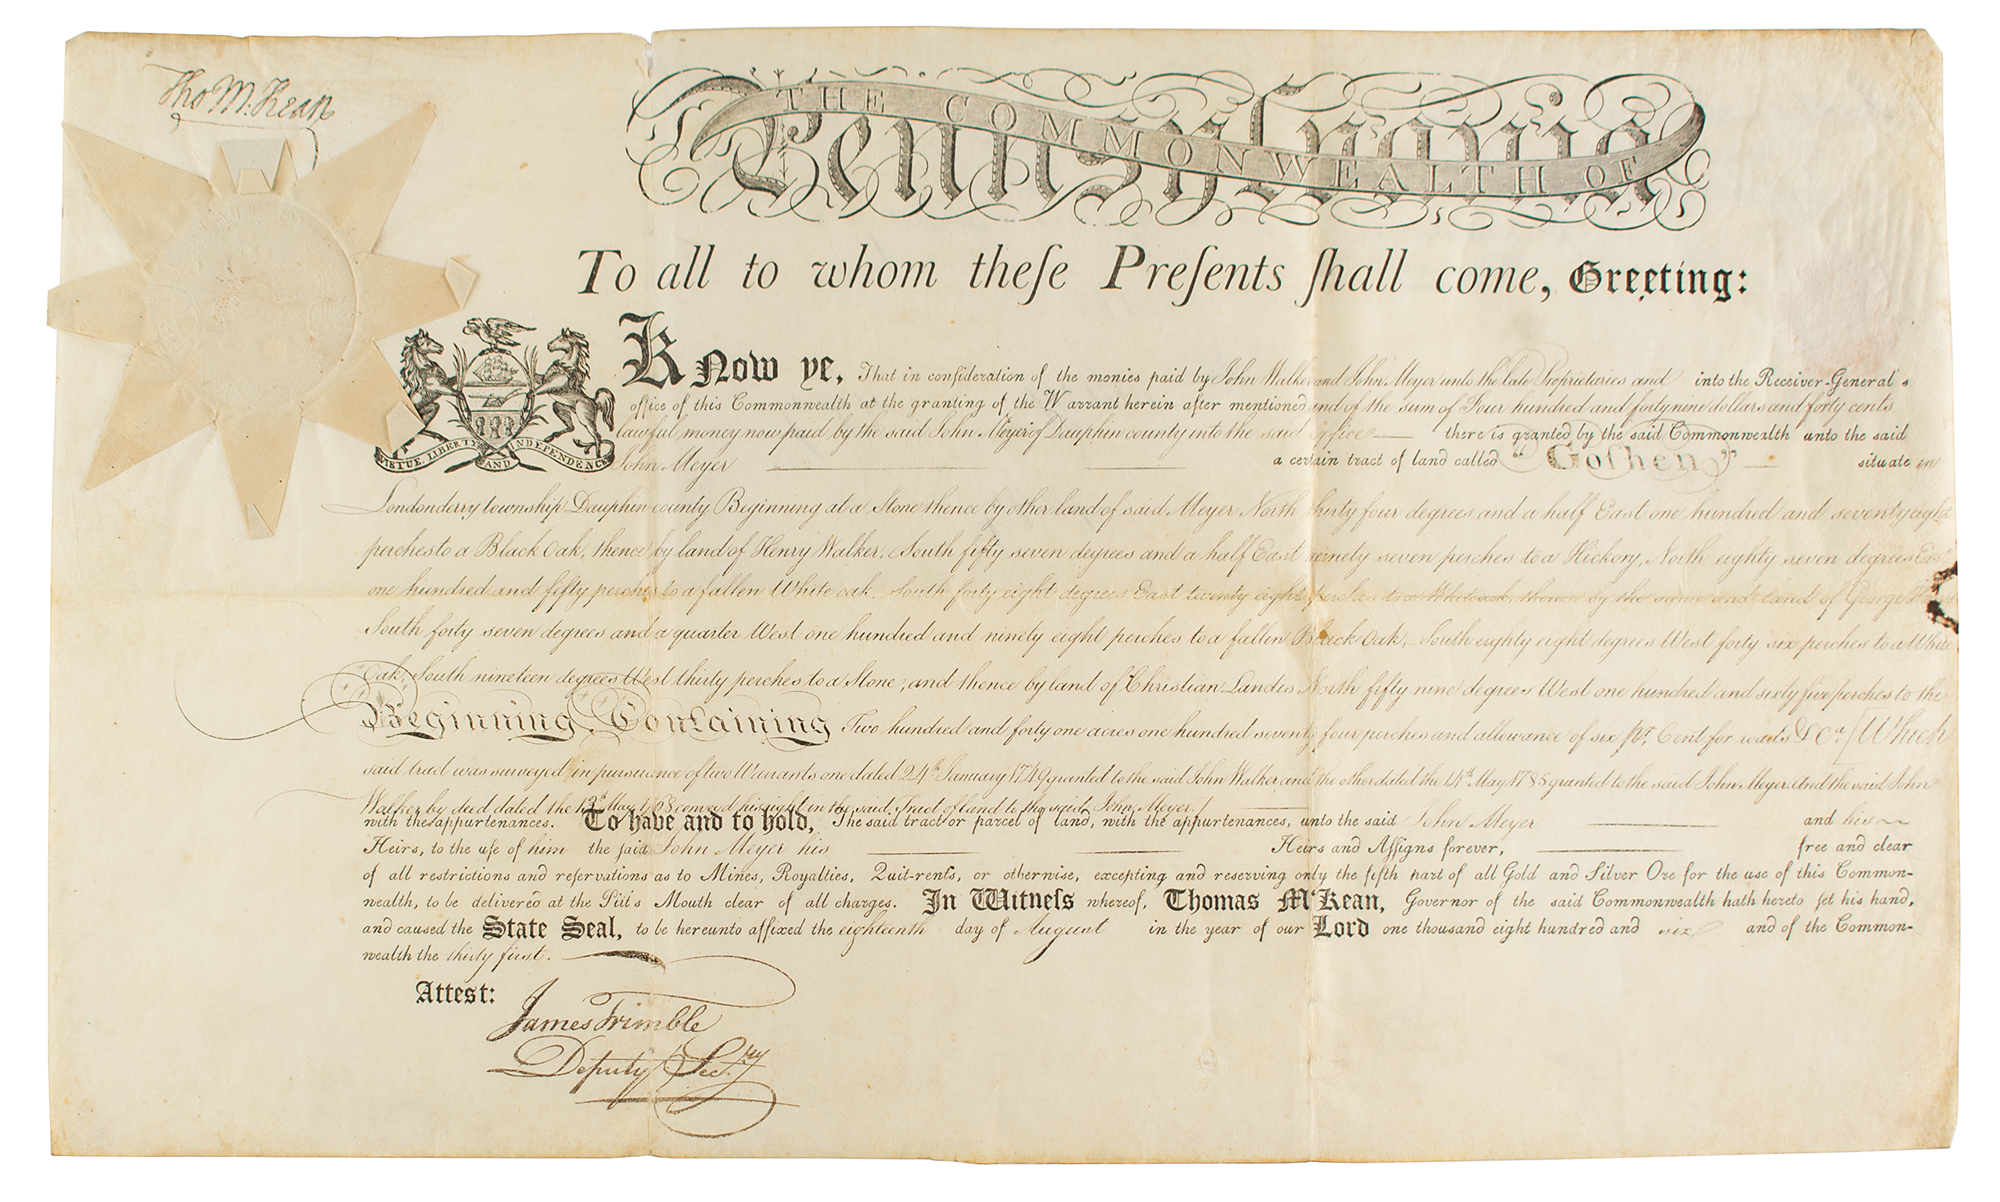 Tho M:Kean
THE COMMONWEALTH OF
Pennsylvania
To all to whom theſe Preſents ſhall come, Greeting:
VIRTUE, LIBERTY AND INDEPENDENCE
Know ye, That in conſideration of the monies paid by John Walker and John Meyer unto the late Proprietaries and into the Receiver-General's
office of this Commonwealth at the granting of the Warrant herein after mentioned and of the sum of Four hundred and forty nine dollars and forty cents
lawful money now paid by the said John Meyer of Dauphin county into the said Office — there is granted by the said Commonwealth unto the said
John Meyer — a certain tract of land called "Goſhen" — situate in
Londonderry township Dauphin county Beginning at a Stone thence by other land of said Meyer North thirty four degrees and a half East one hundred and seventy eight
perches to a Black Oak, thence by land of Henry Walker, South fifty seven degrees and a half East ninety seven perches to a Hickory, North eighty seven degrees East
one hundred and fifty perches to a fallen White oak, South forty eight degrees East twenty eight perches to a Whiteoak, thence by the same and land of George
South forty seven degrees and a quarter West one hundred and ninety eight perches to a fallen Black Oak, South eighty eight degrees West forty six perches to a White
Oak, South nineteen degrees West thirty perches to a Stone, and thence by land of Christian Landis North fifty nine degrees West one hundred and sixty five perches to the
Beginning Containing Two hundred and forty one acres one hundred seventy four perches and allowance of six pr. Cent for roads &ca. [Which
said tract was surveyed in pursuance of two Warrants one dated 24th January 1749 granted to the said John Walker and the other dated the 14th May 1788 granted to the said John Meyer. And the said John
Walker by deed dated the May conveyed his right in the said Tract of land to the said John Meyer.]
with the appurtenances. To have and to hold, The said tract or parcel of land, with the appurtenances, unto the said John Meyer — and his
Heirs, to the uſe of him the ſaid John Meyer his — Heirs and Aſſigns forever, — free and clear
of all restrictions and reſervations as to Mines, Royalties, Quit-rents, or otherwise, excepting and reserving only the fifth part of all Gold and Silver Ore for the use of this Common-
wealth, to be delivered at the Pit's Mouth clear of all charges. In Witneſs whereof, Thomas M'Kean, Governor of the said Commonwealth hath hereto ſet his hand,
and caused the State Seal, to be hereunto affixed the eighteenth day of August in the year of our Lord one thousand eight hundred and six and of the Common-
wealth the thirty first.
Attest:
James Trimble
Deputy Sec.ry